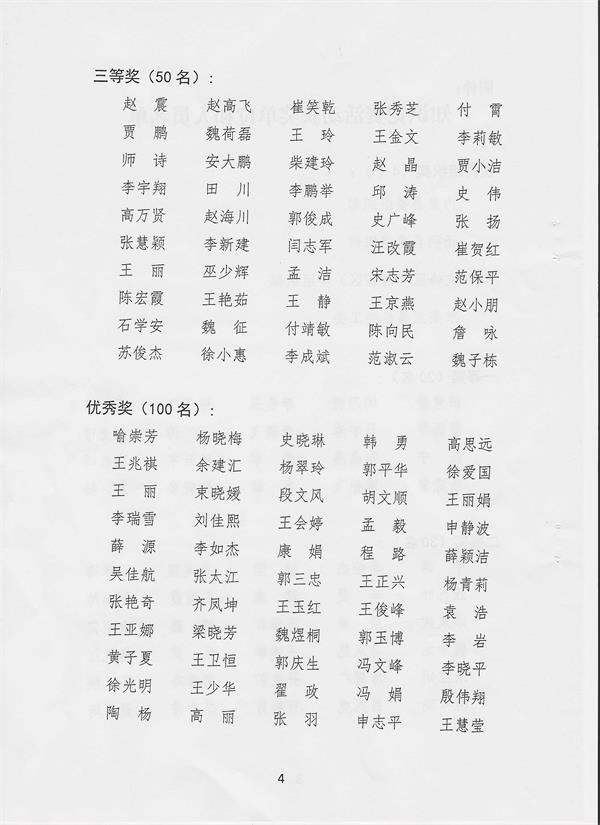 三等奖（50名）：
赵　震　赵高飞　崔笑乾　张秀芝　付　霄
贾　鹏　魏荷磊　王　玲　王金文　李莉敏
师　诗　安大鹏　柴建玲　赵　晶　贾小洁
李宇翔　田　川　李鹏举　邱　涛　史　伟
高万贤　赵海川　郭俊成　史广峰　张　扬
张慧颖　李新建　闫志军　汪改霞　崔贺红
王　丽　巫少辉　孟　洁　宋志芳　范保平
陈宏霞　王艳茹　王　静　王京燕　赵小朋
石学安　魏　征　付靖敏　陈向民　詹　咏
苏俊杰　徐小惠　李成斌　范淑云　魏子栋
优秀奖（100名）：
喻崇芳　杨晓梅　史晓琳　韩　勇　高思远
王兆祺　余建汇　杨翠玲　郭平华　徐爱国
王　丽　束晓媛　段文风　胡文顺　王丽娟
李瑞雪　刘佳熙　王会婷　孟　毅　申静波
薛　源　李如杰　康　娟　程　路　薛颖洁
吴佳航　张太江　郭三忠　王正兴　杨青莉
张艳奇　齐凤坤　王玉红　王俊峰　袁　浩
王亚娜　梁晓芳　魏煜桐　郭玉博　李　岩
黄子夏　王卫恒　郭庆生　冯文峰　李晓平
徐光明　王少华　翟　政　冯　娟　殷伟翔
陶　杨　高　丽　张　羽　申志平　王慧莹
4